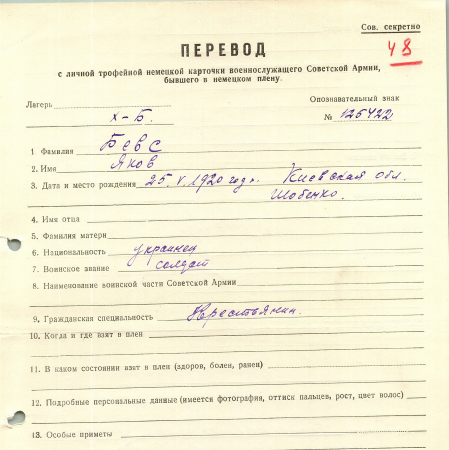 Сов. секретно
48
ПЕРЕВОД
с личной трофейной немецкой карточки военнослужащего Советской Армии,
бывшего в немецком плену.
Лагерь Х-Б. Опознавательный знак
№ 125422
1 Фамилия Бевс
2. Имя Яков
3. Дата и место рождения 25.V.1920 год. Киевская обл.
Шобенко.
4. Имя отца
5. Фамилия матери
6. Национальность украинец
7. Воинское звание солдат
8. Наименование воинской части Советской Армии
9. Гражданская специальность Крестьянин.
10. Когда и где взят в плен
11. В каком состоянии взят в плен (здоров, болен, ранен)
12. Подробные персональные данные (имеется фотография, оттиск пальцев, рост, цвет волос)
13. Особые приметы